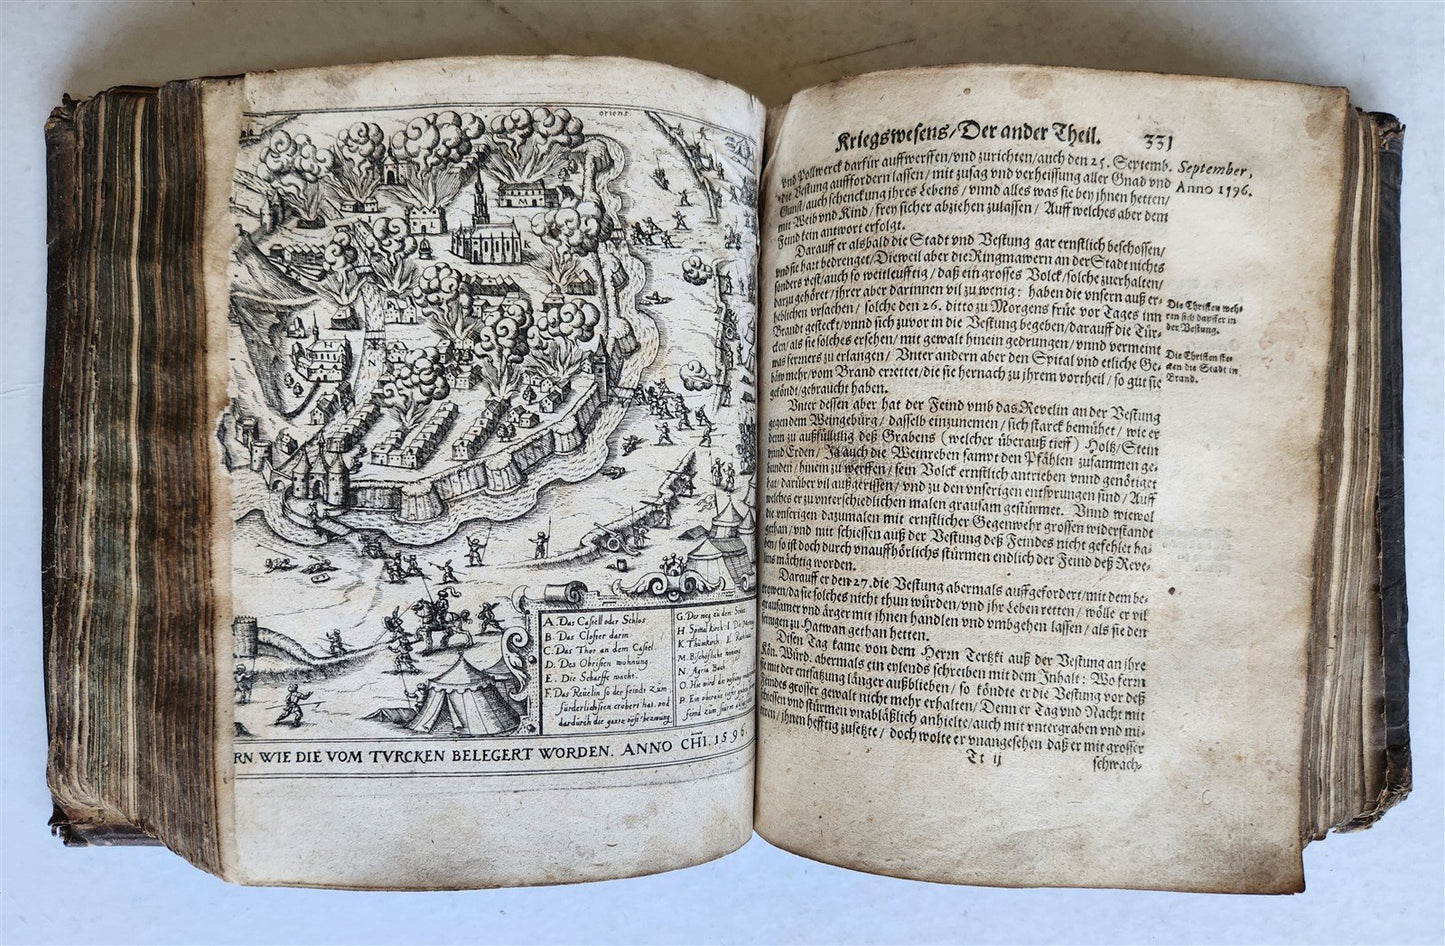 oriens.
A. Das Castell oder Schlos
B. Das Closter darin
C. Das Thor an dem Castel.
D. Des Obristen wohnung
E. Die Scharffe wacht.
F. Das Reuelin so der feindt zum
fürderlichsten erobert hat. vnd
dardurch die gantze
G. Der weg zu dem Schlos
H Spittal kirch I
K Thumkirch L Rathaus
M. Bischofliche wonung
N. Agria Bach
O. Hie wird die
P. Ein
feind zum
RN. WIE DIE VOM TVRCKEN BELEGERT WORDEN. ANNO CHI. 1596.
Kriegswesens/Der ander Theil. 331
vnd Pollwerck darfür auffwerffen/vnd zurichten/auch den 25. Septemb.
die Vestung auffordern lassen/mit zusag vnd verheissung aller Gnad vnd
Gunst/auch schenckung jhres Lebens/vnnd alles was sie bey jhnen hetten/
mit Weib vnd Kind/frey sicher abziehen zulassen/Auff welches aber dem
Feind kein antwort erfolgt.
September,
Anno 1596.
Darauff er alsbald die Stadt vnd Vestung gar ernstlich beschossen/
vnd sie hart bedrenget/Dieweil aber die Ringmawern an der Stadt nichts
sonders vest/auch so weitleufftig/daß ein grosses Volck/solche zuerhalten/
darzu gehöret/jhrer aber darinnen vil zu wenig: haben die vnsern auß er-
heblichen vrsachen/solche den 26. ditto zu Morgens früe vor Tages inn
Brandt gesteckt/vnnd sich zuvor in die Vestung begeben/darauff die Tür-
cken/als sie solches ersehen/mit gewalt hinein gedrungen/vnnd vermeint
was fermers zu erlangen/Vnter andern aber den Spital vnd etliche Ge-
bäw mehr/vom Brand errettet/die sie hernach zu jhrem vortheil/so gut sie
geköndt/gebraucht haben.
Die Christen weh-
ren sich dapffer in
der Vestung.
Die Christen ste-
cken die Stadt in
Brand.
Vnter dessen aber hat der Feind vmb das Revelin an der Vestung
gegen dem Weingebürg/dasselb einzunemen/sich starck bemühet/wie er
denn zu außfüllung deß Grabens (welcher überauß tieff) Holtz/Stein
vnnd Erden/Ja auch die Weinreben sampt den Pfählen zusammen ge-
bunden/hinein zu werffen/sein Volck ernstlich antrieben vnnd genötiget
hat/darüber vil außgerissen/vnd zu den vnserigen entsprungen sind/Auff
welches er zu vnterschiedlichen malen grausam gestürmet. Vnnd wiewol
die vnserigen dazumalen mit ernstlicher Gegenwehr grossen widerstandt
gethan/vnd mit schiessen auß der Vestung deß Feindes nicht gefehlet ha-
ben/so ist doch durch vnauffhörlichs stürmen endlich der Feind deß Reve-
lins mächtig worden.
Darauff er den 27. die Vestung abermals auffgefordert/mit dem be-
trowen/da sie solches nicht thun würden/vnd jhr Leben retten/wölle er vil
grausamer vnd ärger mit jhnen handlen vnd vmbgehen lassen/als sie den
seinigen zu Hatwan gethan hetten.
Disen Tag kame von dem Herrn Tertzki auß der Vestung an jhre
Kön. Würd. abermals ein eylends schreiben mit dem Inhalt: Wo fern
sie mit der entsatzung länger außblieben/so köndte er die Vestung vor deß
Feindes grosser gewalt nicht mehr erhalten/Denn er Tag vnd Nacht mit
schiessen vnd stürmen vnabläßlich anhielte/auch mit vntergraben vnd mi-
niren/jhnen hefftig zusetzte/doch wolte er vnangesehen daß er mit grosser
Tt ij schwach-